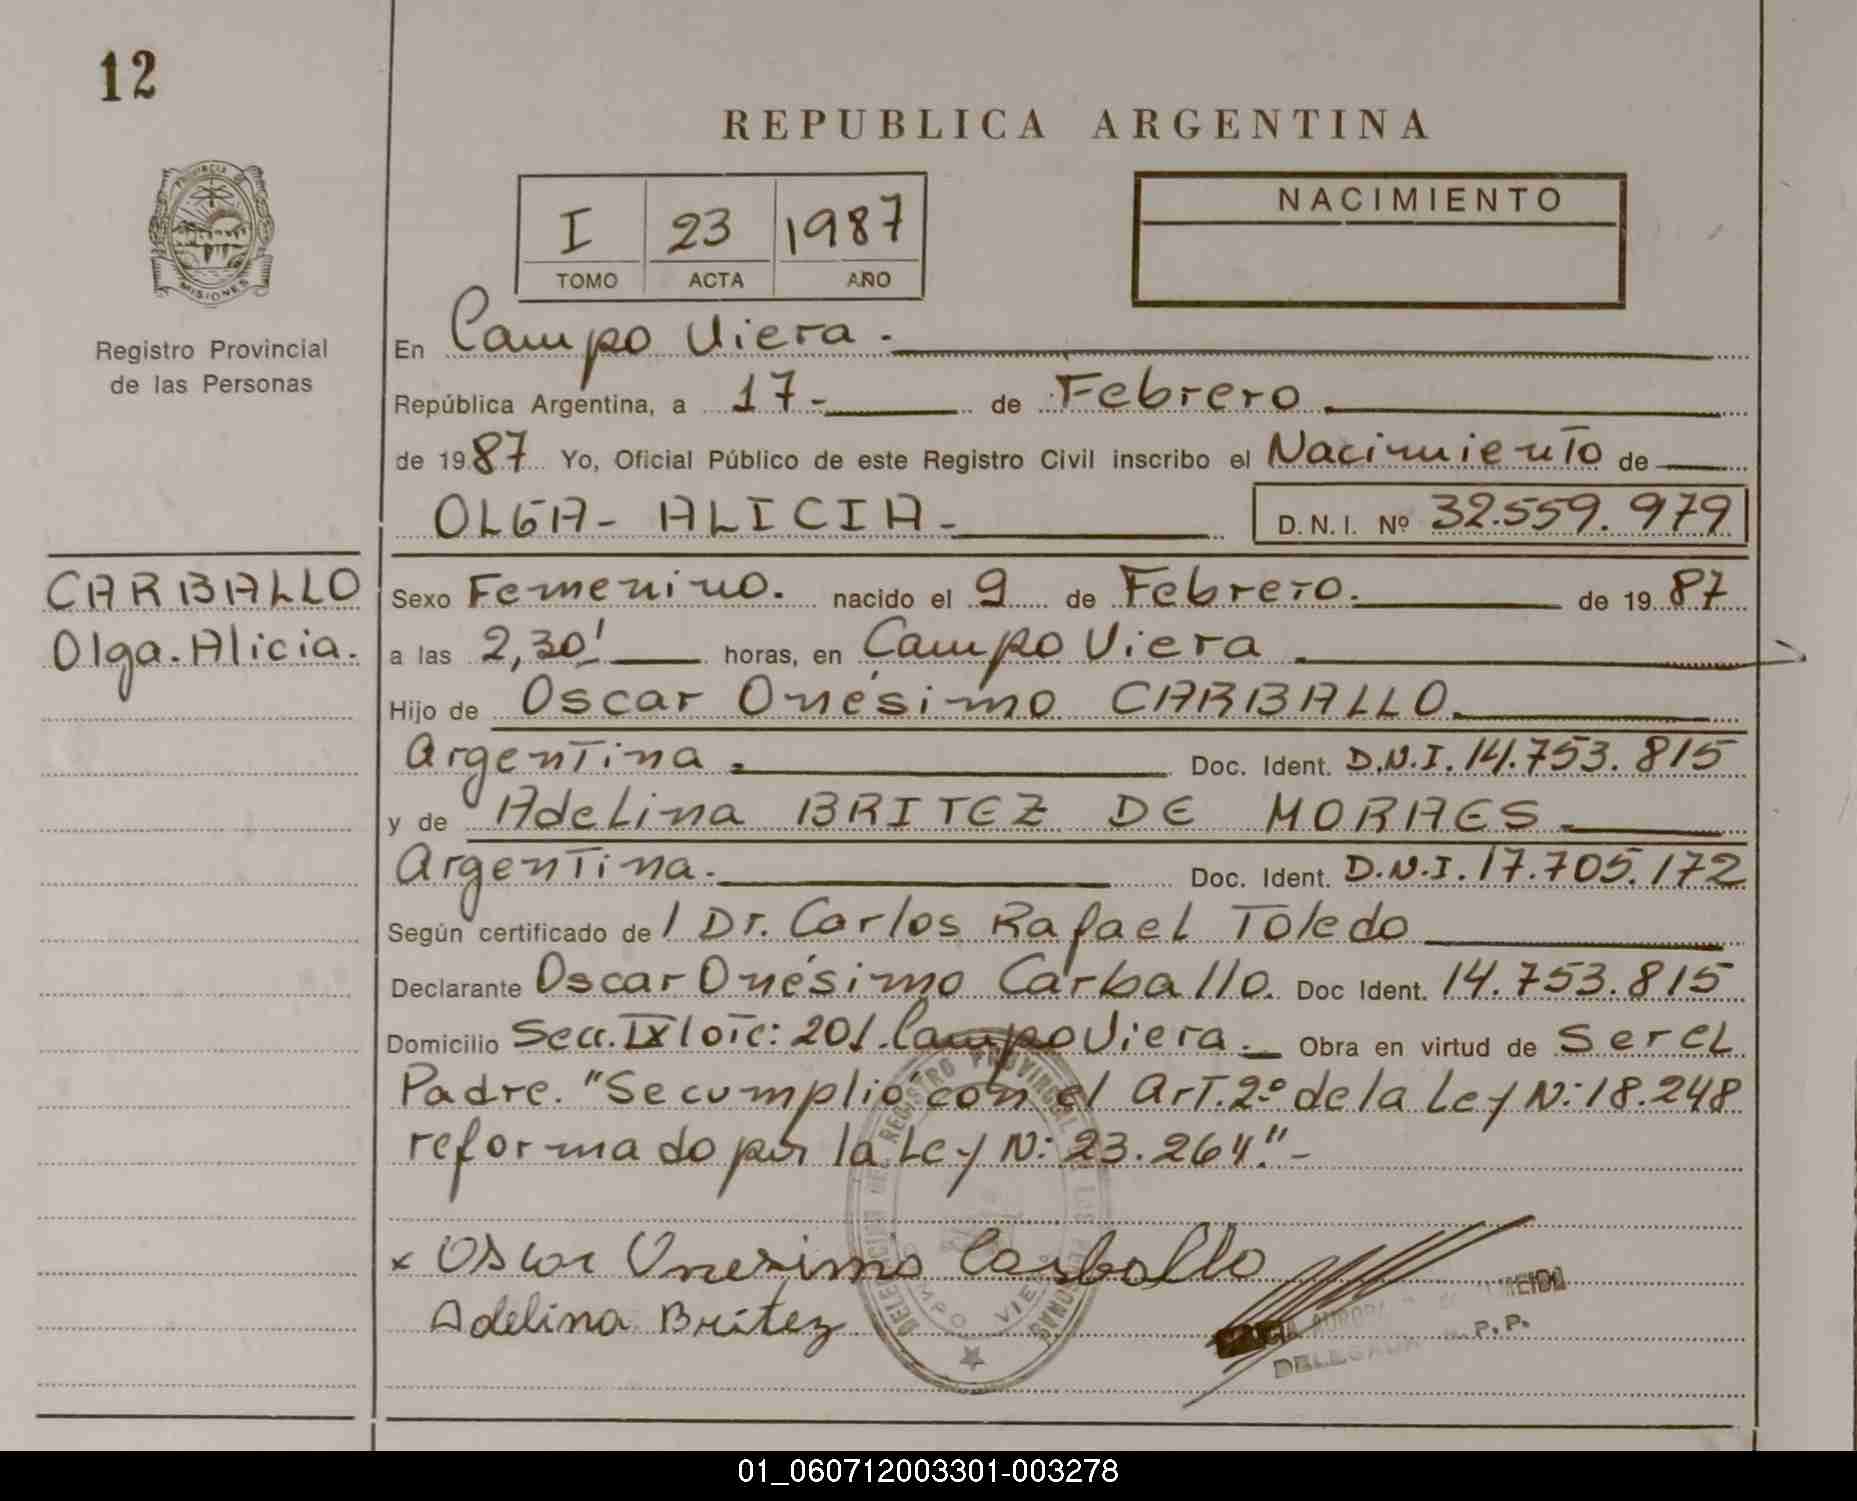 12
REPUBLICA ARGENTINA
PROVINCIA DE MISIONES
I 23 1987
TOMO ACTA AÑO
NACIMIENTO
Registro Provincial
de las Personas
En Campo Viera.
República Argentina, a 17- de Febrero
de 1987 Yo, Oficial Público de este Registro Civil inscribo el Nacimiento de
OLGA- ALICIA- D.N.I. Nº 32.559.979
CARBALLO
Olga.Alicia.
Sexo Femenino. nacido el 9 de Febrero. de 1987
a las 2,30' horas, en Campo Viera
Hijo de Oscar Onésimo CARBALLO.
Argentina. Doc. Ident. D.N.I. 14.753.815
y de Adelina BRITEZ DE MORAES
Argentina. Doc. Ident. D.N.I. 17.705.172
Según certificado de / Dr. Carlos Rafael Toledo
Declarante Oscar Onésimo Carballo. Doc Ident. 14.753.815
Domicilio Secc. IX lote: 201. Campo Viera. Obra en virtud de ser el
Padre. "Se cumplió con el Art. 2º de la Ley N: 18.248
reformado por la Ley N: 23.264".-
x Oscar Onesimo Carballo
Adelina Britez
DELEGACION DEL REGISTRO PROVINCIAL DE LAS PERSONAS
CAMPO VIERA
AURORA
DELEGADA R.P.P.
01_060712003301-003278